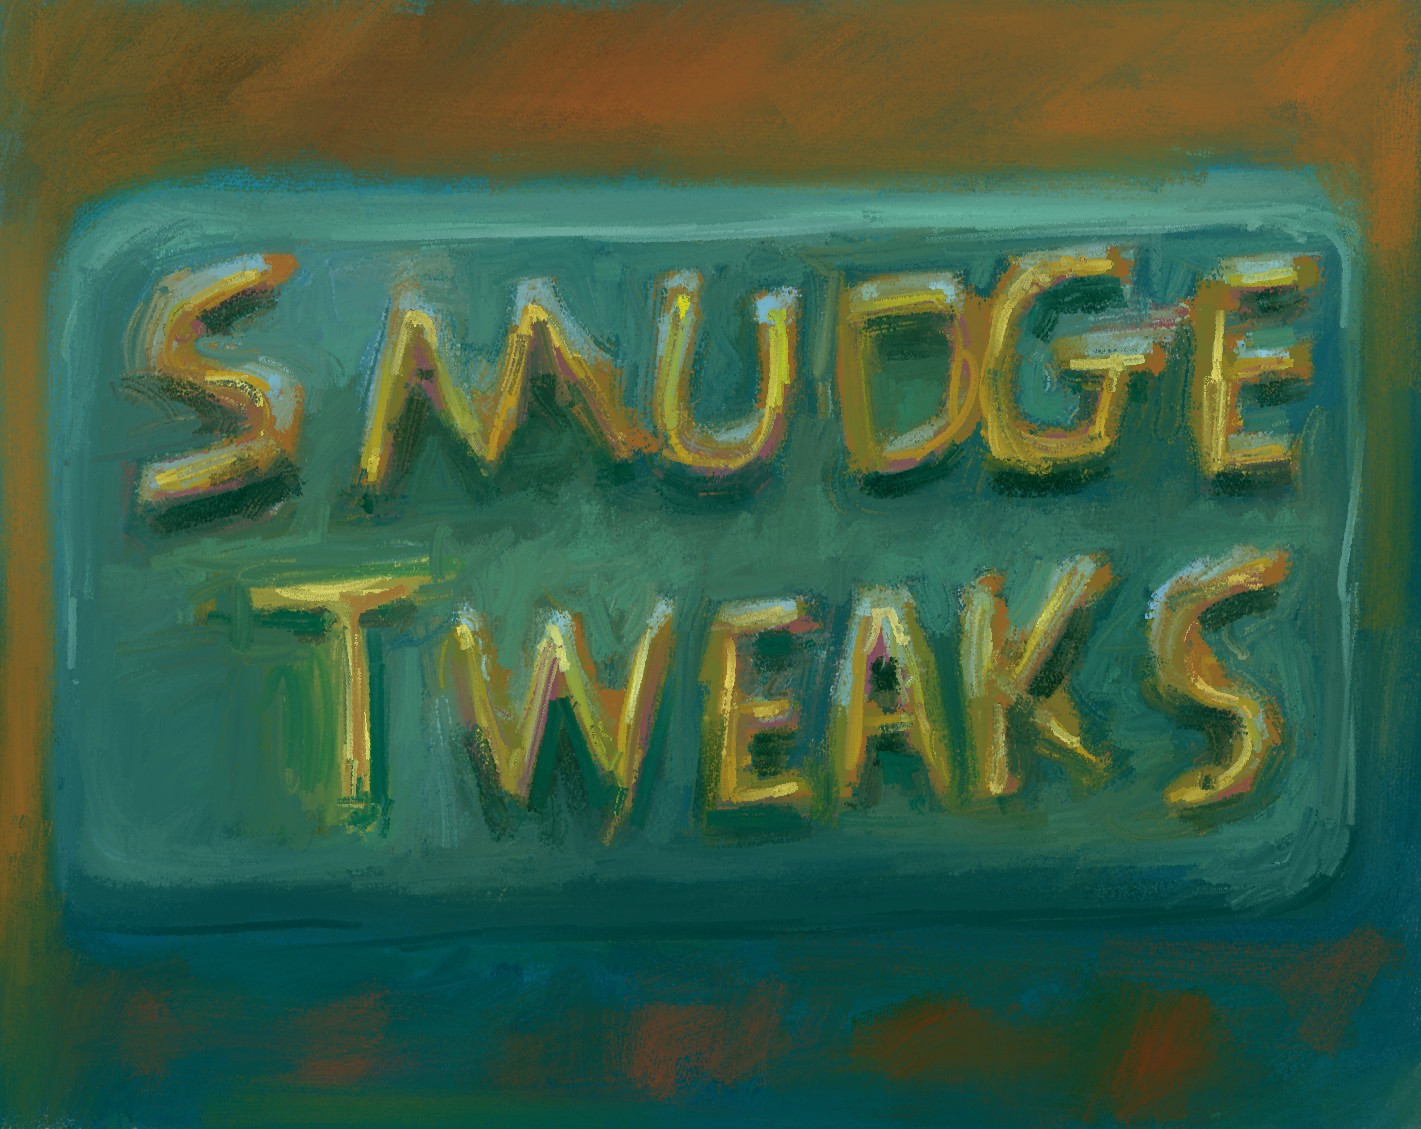 SMUDGE
TWEAKS